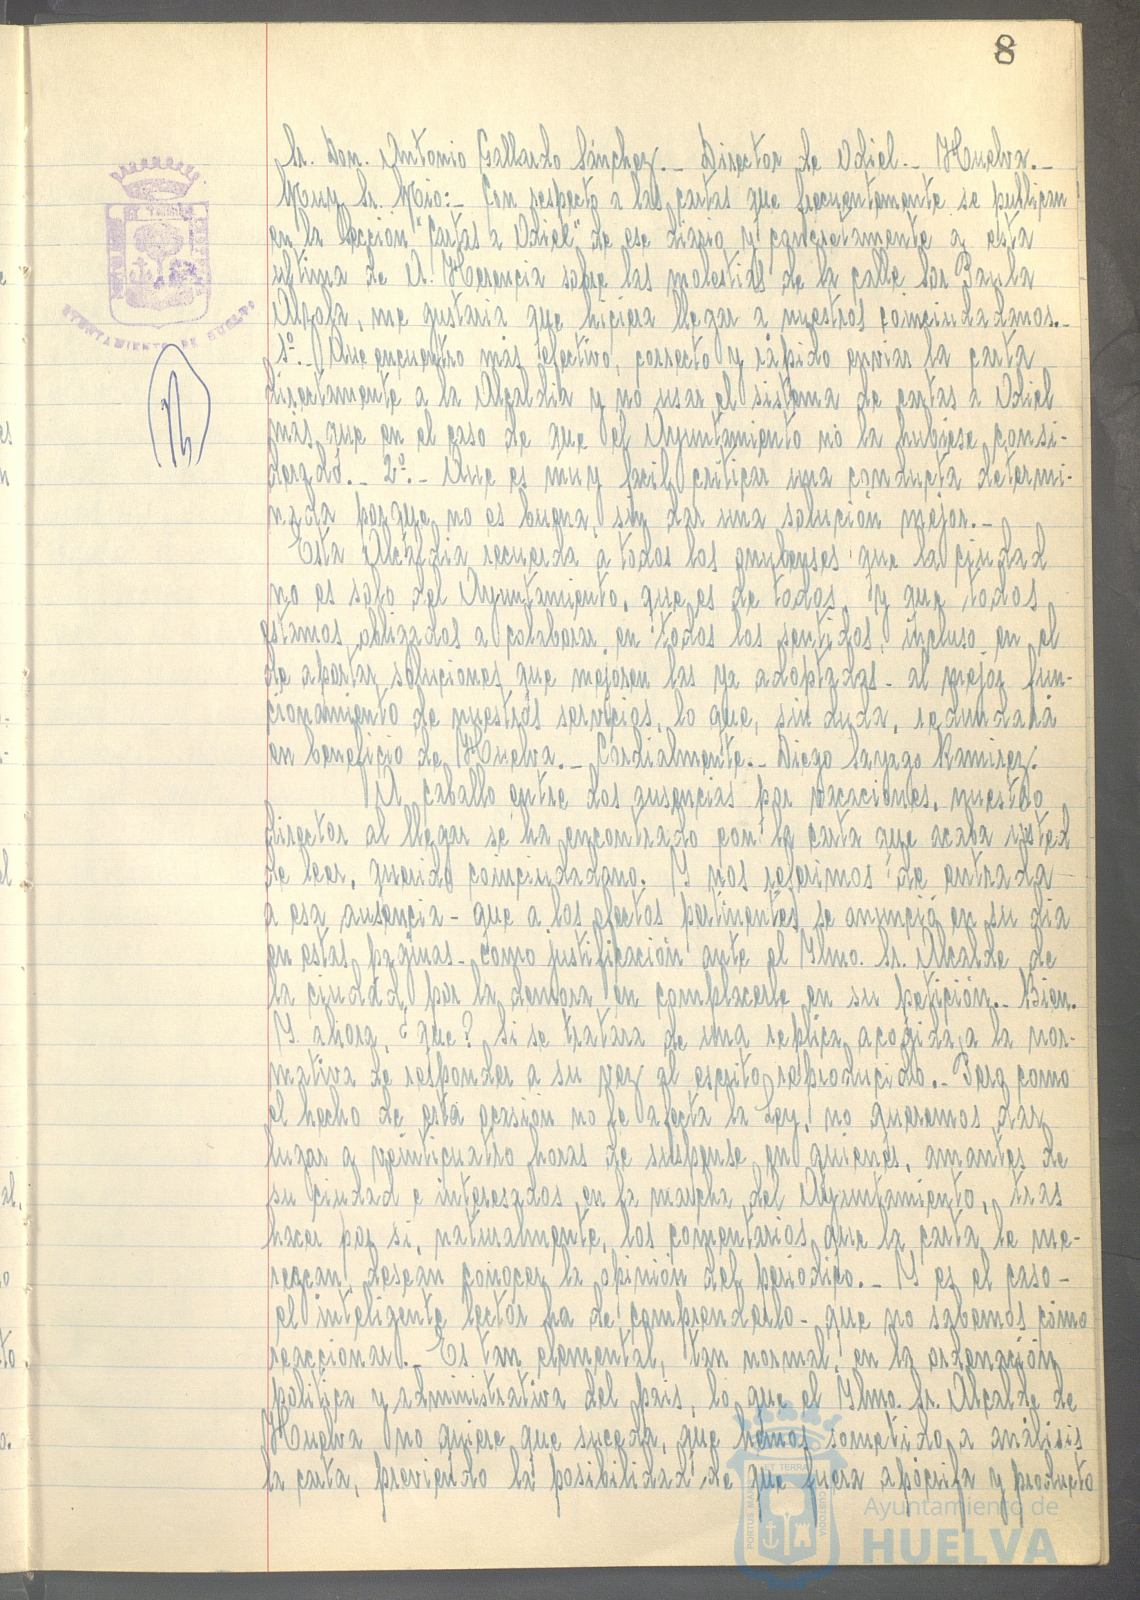 8
Sr. Don. Antonio Gallardo Sánchez.- Director de Odiel.- Huelva.-
Muy Sr. Mio:- Con respecto a las cartas que frecuentemente se publican
en la sección "Cartas a Odiel" de ese diario y concretamente a esta
ultima de A. Herencia sobre las molestias de la calle Sor Paula
Alzola, me gustaria que hiciera llegar a nuestros coinciudadanos.-
1º.- Que encuentro más efectivo, correcto y rápido enviar la carta
directamente a la Alcaldia y no usar el sistema de cartas a Odiel
más que en el caso de que el Ayuntamiento no la hubiese consi-
derado.- 2º.- Que es muy facil criticar una conducta determi-
nada porque no es buena, sin dar una solución mejor.-
Esta Alcaldia recuerda a todos los onubenses que la ciudad
no es solo del Ayuntamiento, que es de todos, y que todos
estamos obligados a colaborar en todos los sentidos, incluso en el
de aportar soluciones que mejoren las ya adoptadas- al mejor fun-
cionamiento de nuestros servicios, lo que, sin duda, redundará
en beneficio de Huelva.- Cordialmente.- Diego Sayago Ramirez.
A caballo entre dos ausencias por vacaciones, nuestro
Director al llegar se ha encontrado con la carta que acaba usted
de leer, querido coinciudadano. Y nos referimos de entrada
a esa ausencia- que a los efectos pertinentes se anunció en su dia
en estas paginas- como justificación ante el Ylmo. Sr. Alcalde de
la ciudad por la demora en complacerle en su petición.- Bien.
Y. ahora, ¿que? Si se tratara de una replica acogida a la nor-
mativa de responder a su vez al escrito reproducido.- Pero como
el hecho de esta ocasión no le afecta la Ley, no queremos dar
lugar a veinticuatro horas de suspense en quienes, amantes de
su ciudad e interesados en la marcha del Ayuntamiento, tras
hacer por si, naturalmente, los comentarios que la carta le me-
rezcan, desean conocer la opinión del periódico.- Y es el caso-
el inteligente lector ha de comprenderlo- que no sabemos como
reaccionar.- Es tan elemental, tan normal, en la ordenación
politica y administrativa del pais, lo que el Ylmo. Sr. Alcalde de
Huelva no quiere que suceda, que hemos sometido a análisis
la carta, previendo la posibilidad de que fuera apócrifa y producto
AYUNTAMIENTO DE HUELVA
PORTUS MARIS ET TERRAE CUSTODIA
Ayuntamiento de
HUELVA